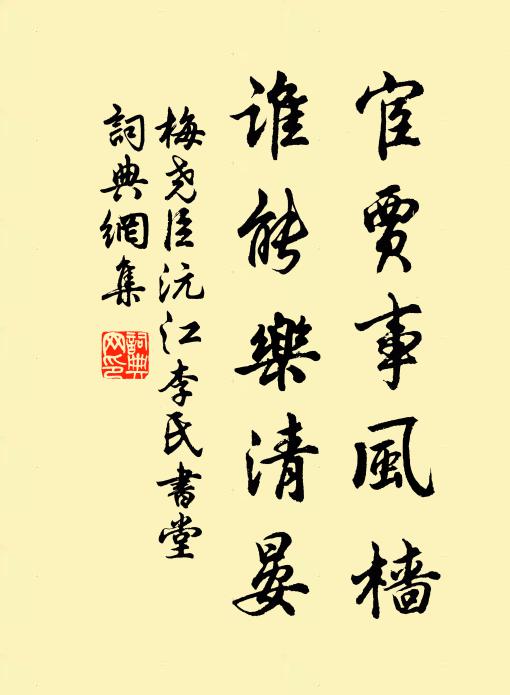 宦賈事風檣
誰能樂清晏
梅尧臣沅江李氏書堂
詞典網集
詞典网印